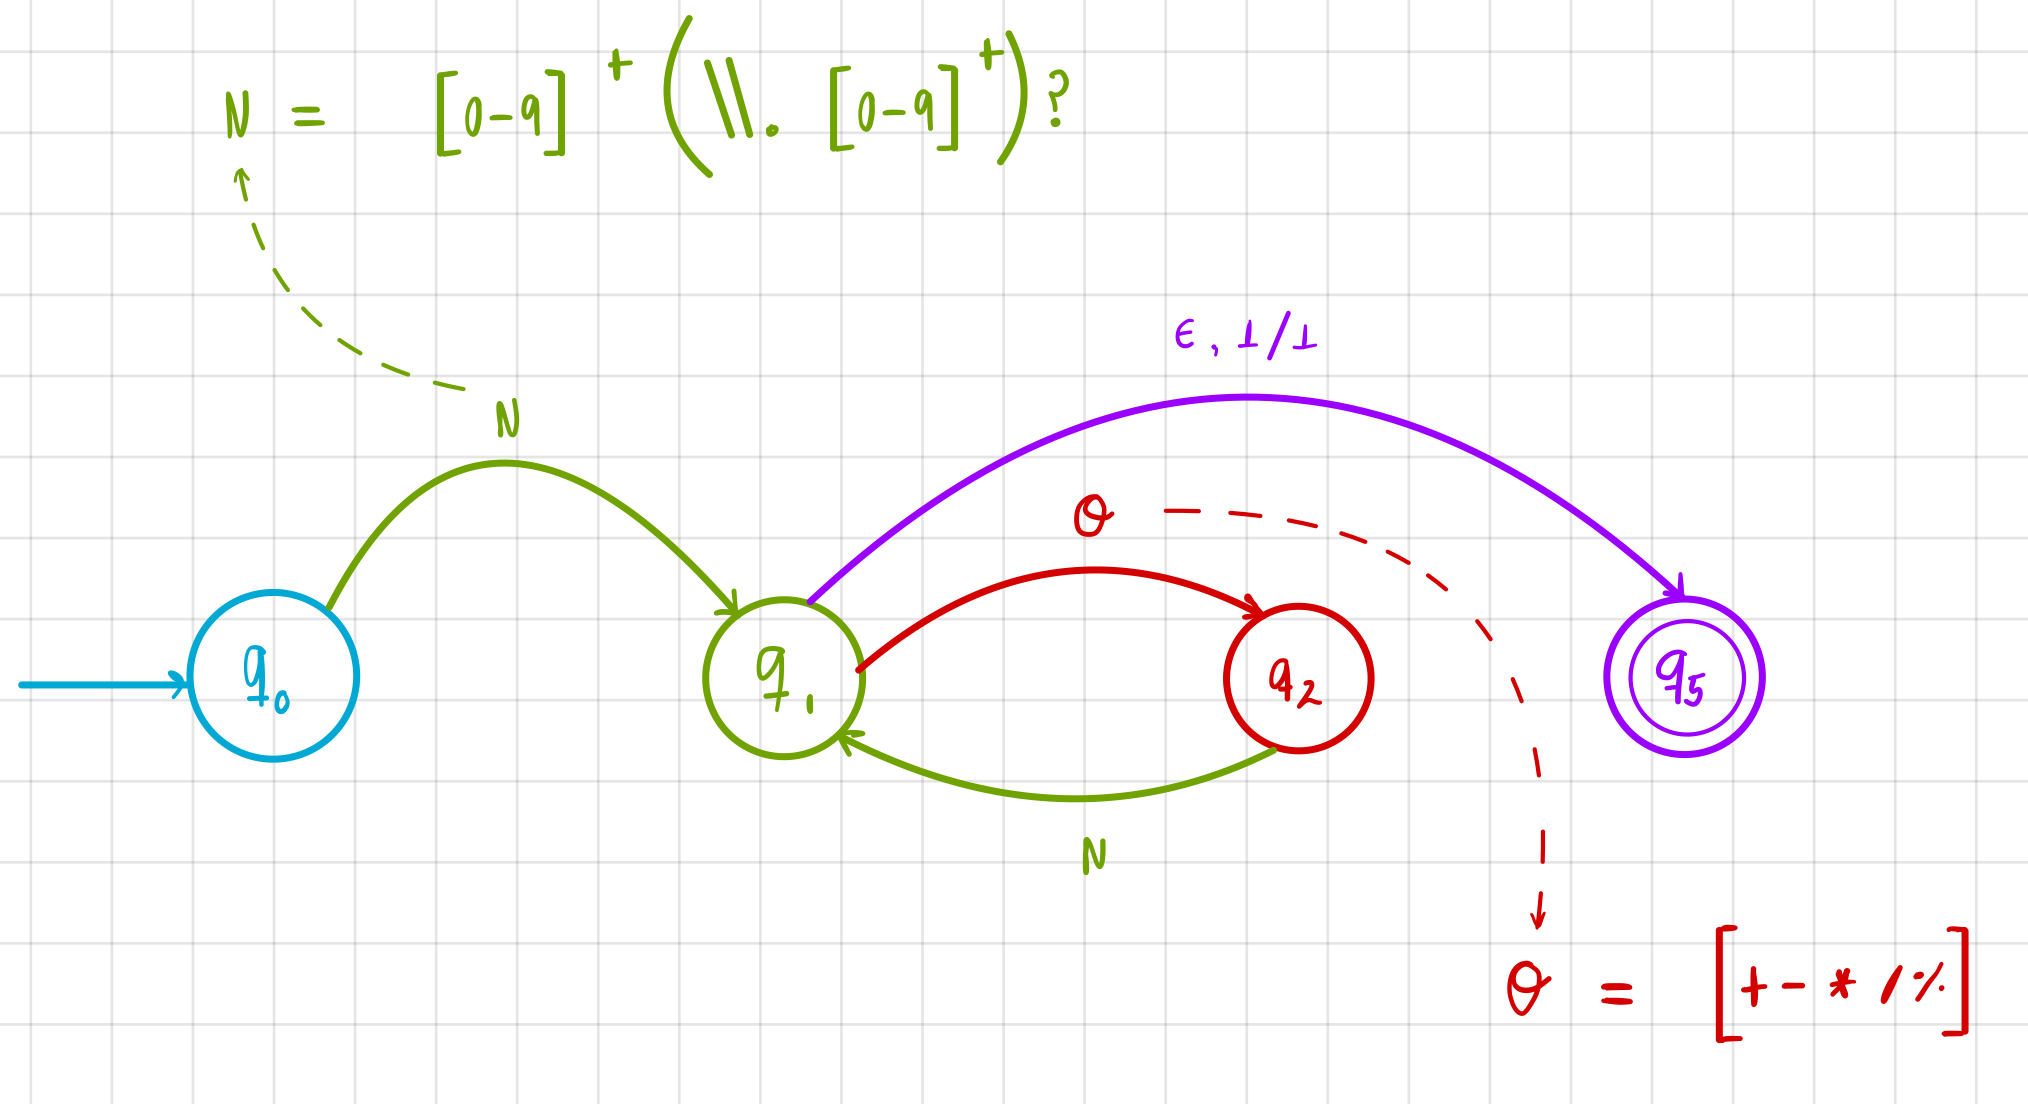 N = [0-9]+(\\.[0-9]+)?
ϵ, 1/1
N
O
q0
q1
q2
q5
N
O = [+-*/%]